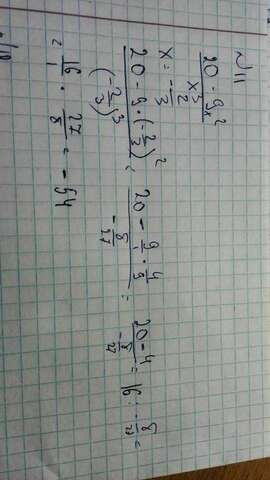 №11
(20 - 9x²)/x³
x = -2/3
(20 - 9·(-2/3)²)/(-2/3)³ = (20 - 9/1 · 4/9)/(-8/27) = (20-4)/(-8/27) = 16 : -8/27 =
= 16/1 · 27/8 = -54